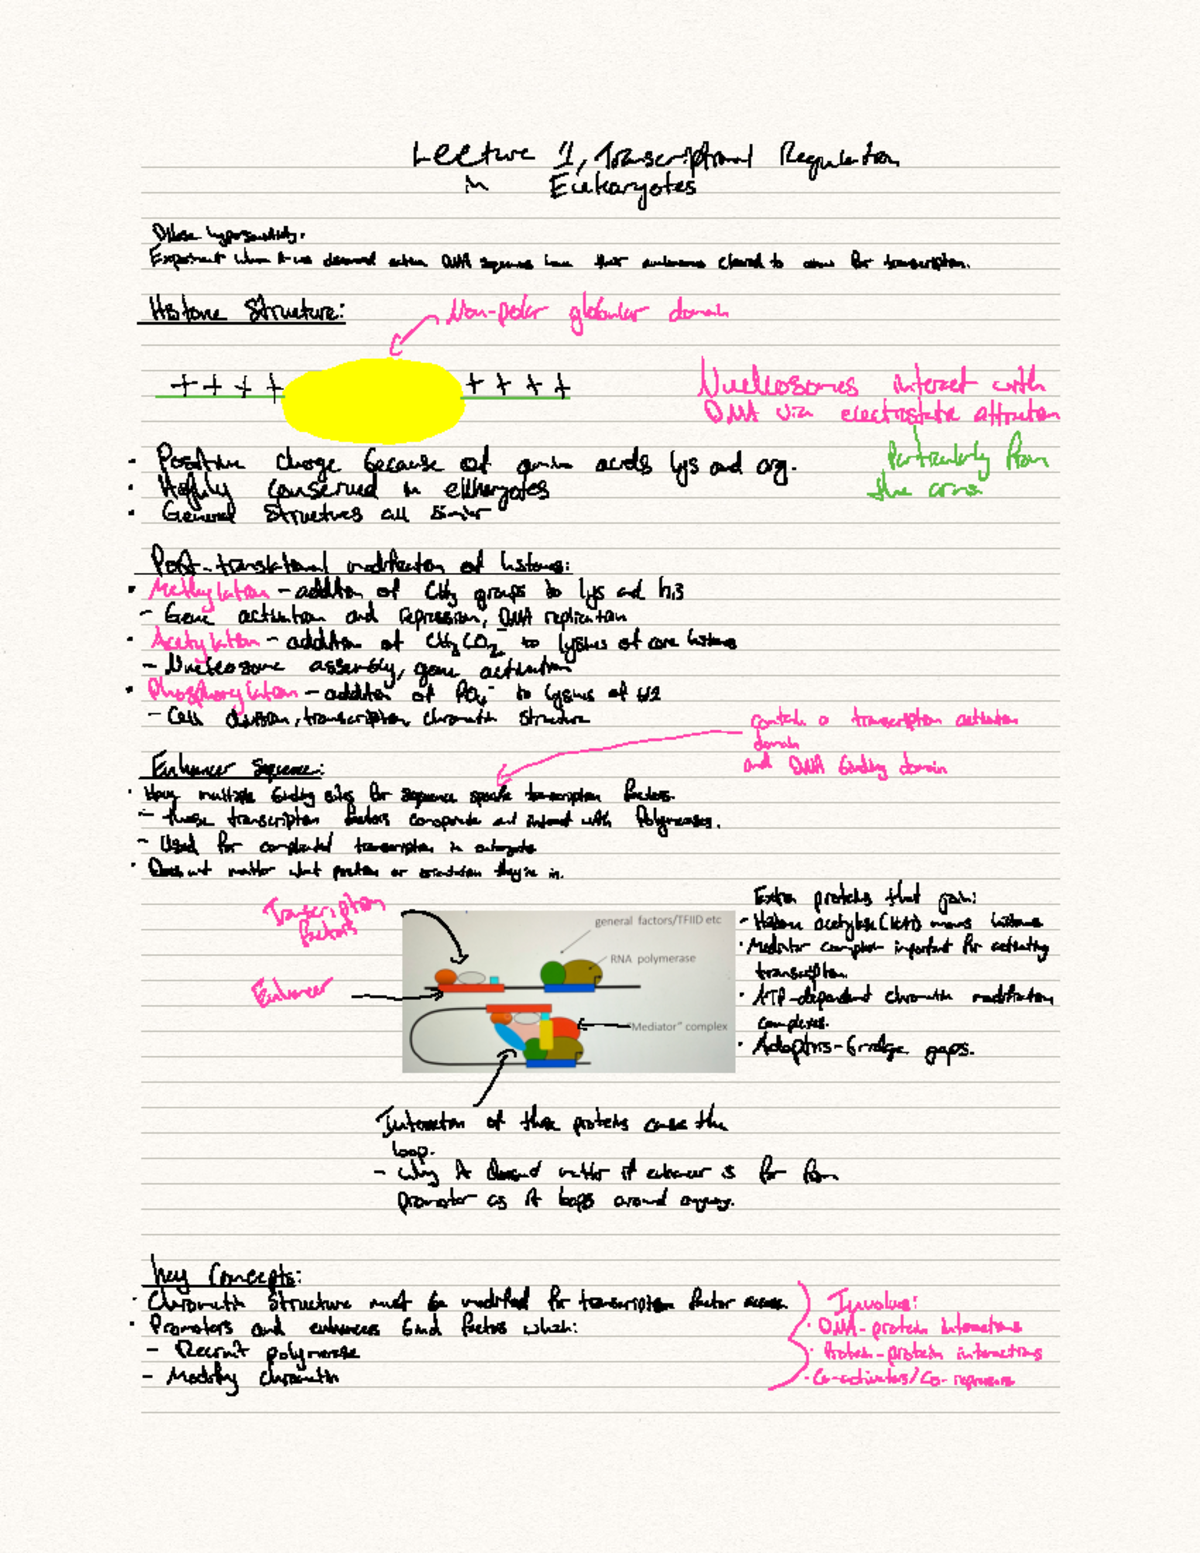 Lecture 1, Transcriptional Regulation
in Eukaryotes
DNase hypersensitivity.
Experiment when it was DNA sequence have their nucleosomes cleared to allow for transcription.
Histone Structure:
Non-polar globular domain
+ + + + + + + +
Nucleosomes interact with
DNA via electrostatic attraction
Particularly from
the arms
• Positive charge because of amino acids lys and arg.
• Highly conserved in eukaryotes
• General structures all similar
Post-translational modification of histones:
• Methylation - addition of CH3 groups to lys and h3
- Gene activation and repression, DNA replication
• Acetylation - addition of CH3CO2- to lysines of core histones
- Nucleosome assembly, gene activation
• Phosphorylation - addition of PO4- to lysines of H2
- Cell division, transcription, chromatin structure
contain a transcription activation
domain
and DNA binding domain
Enhancer Sequence:
• Have multiple binding sites for sequence specific transcription factors.
- these transcription factors cooperate and interact with Polymerases.
- Used for complicated transcription in eukaryotes
• Does not matter what position or orientation they're in.
Transcription
factors
Enhancer
general factors/TFIID etc
RNA polymerase
"Mediator" complex
Extra proteins that join:
- Histone acetylase (HAT) moves histones
• Mediator complex important for activating
transcription.
• ATP-dependent chromatin modification
complexes.
• Adaptors - bridge gaps.
Interaction of these proteins cause the
loop.
- Why it doesn't matter if enhancer is far from
promotor as it loops around anyway.
Key Concepts:
• Chromatin structure must be modified for transcription factor access.
• Promotors and enhancers bind factors which:
- Recruit polymerase
- Modify chromatin
Involves:
• DNA-protein interactions
• Protein-protein interactions
• Co-activators/Co-repressors